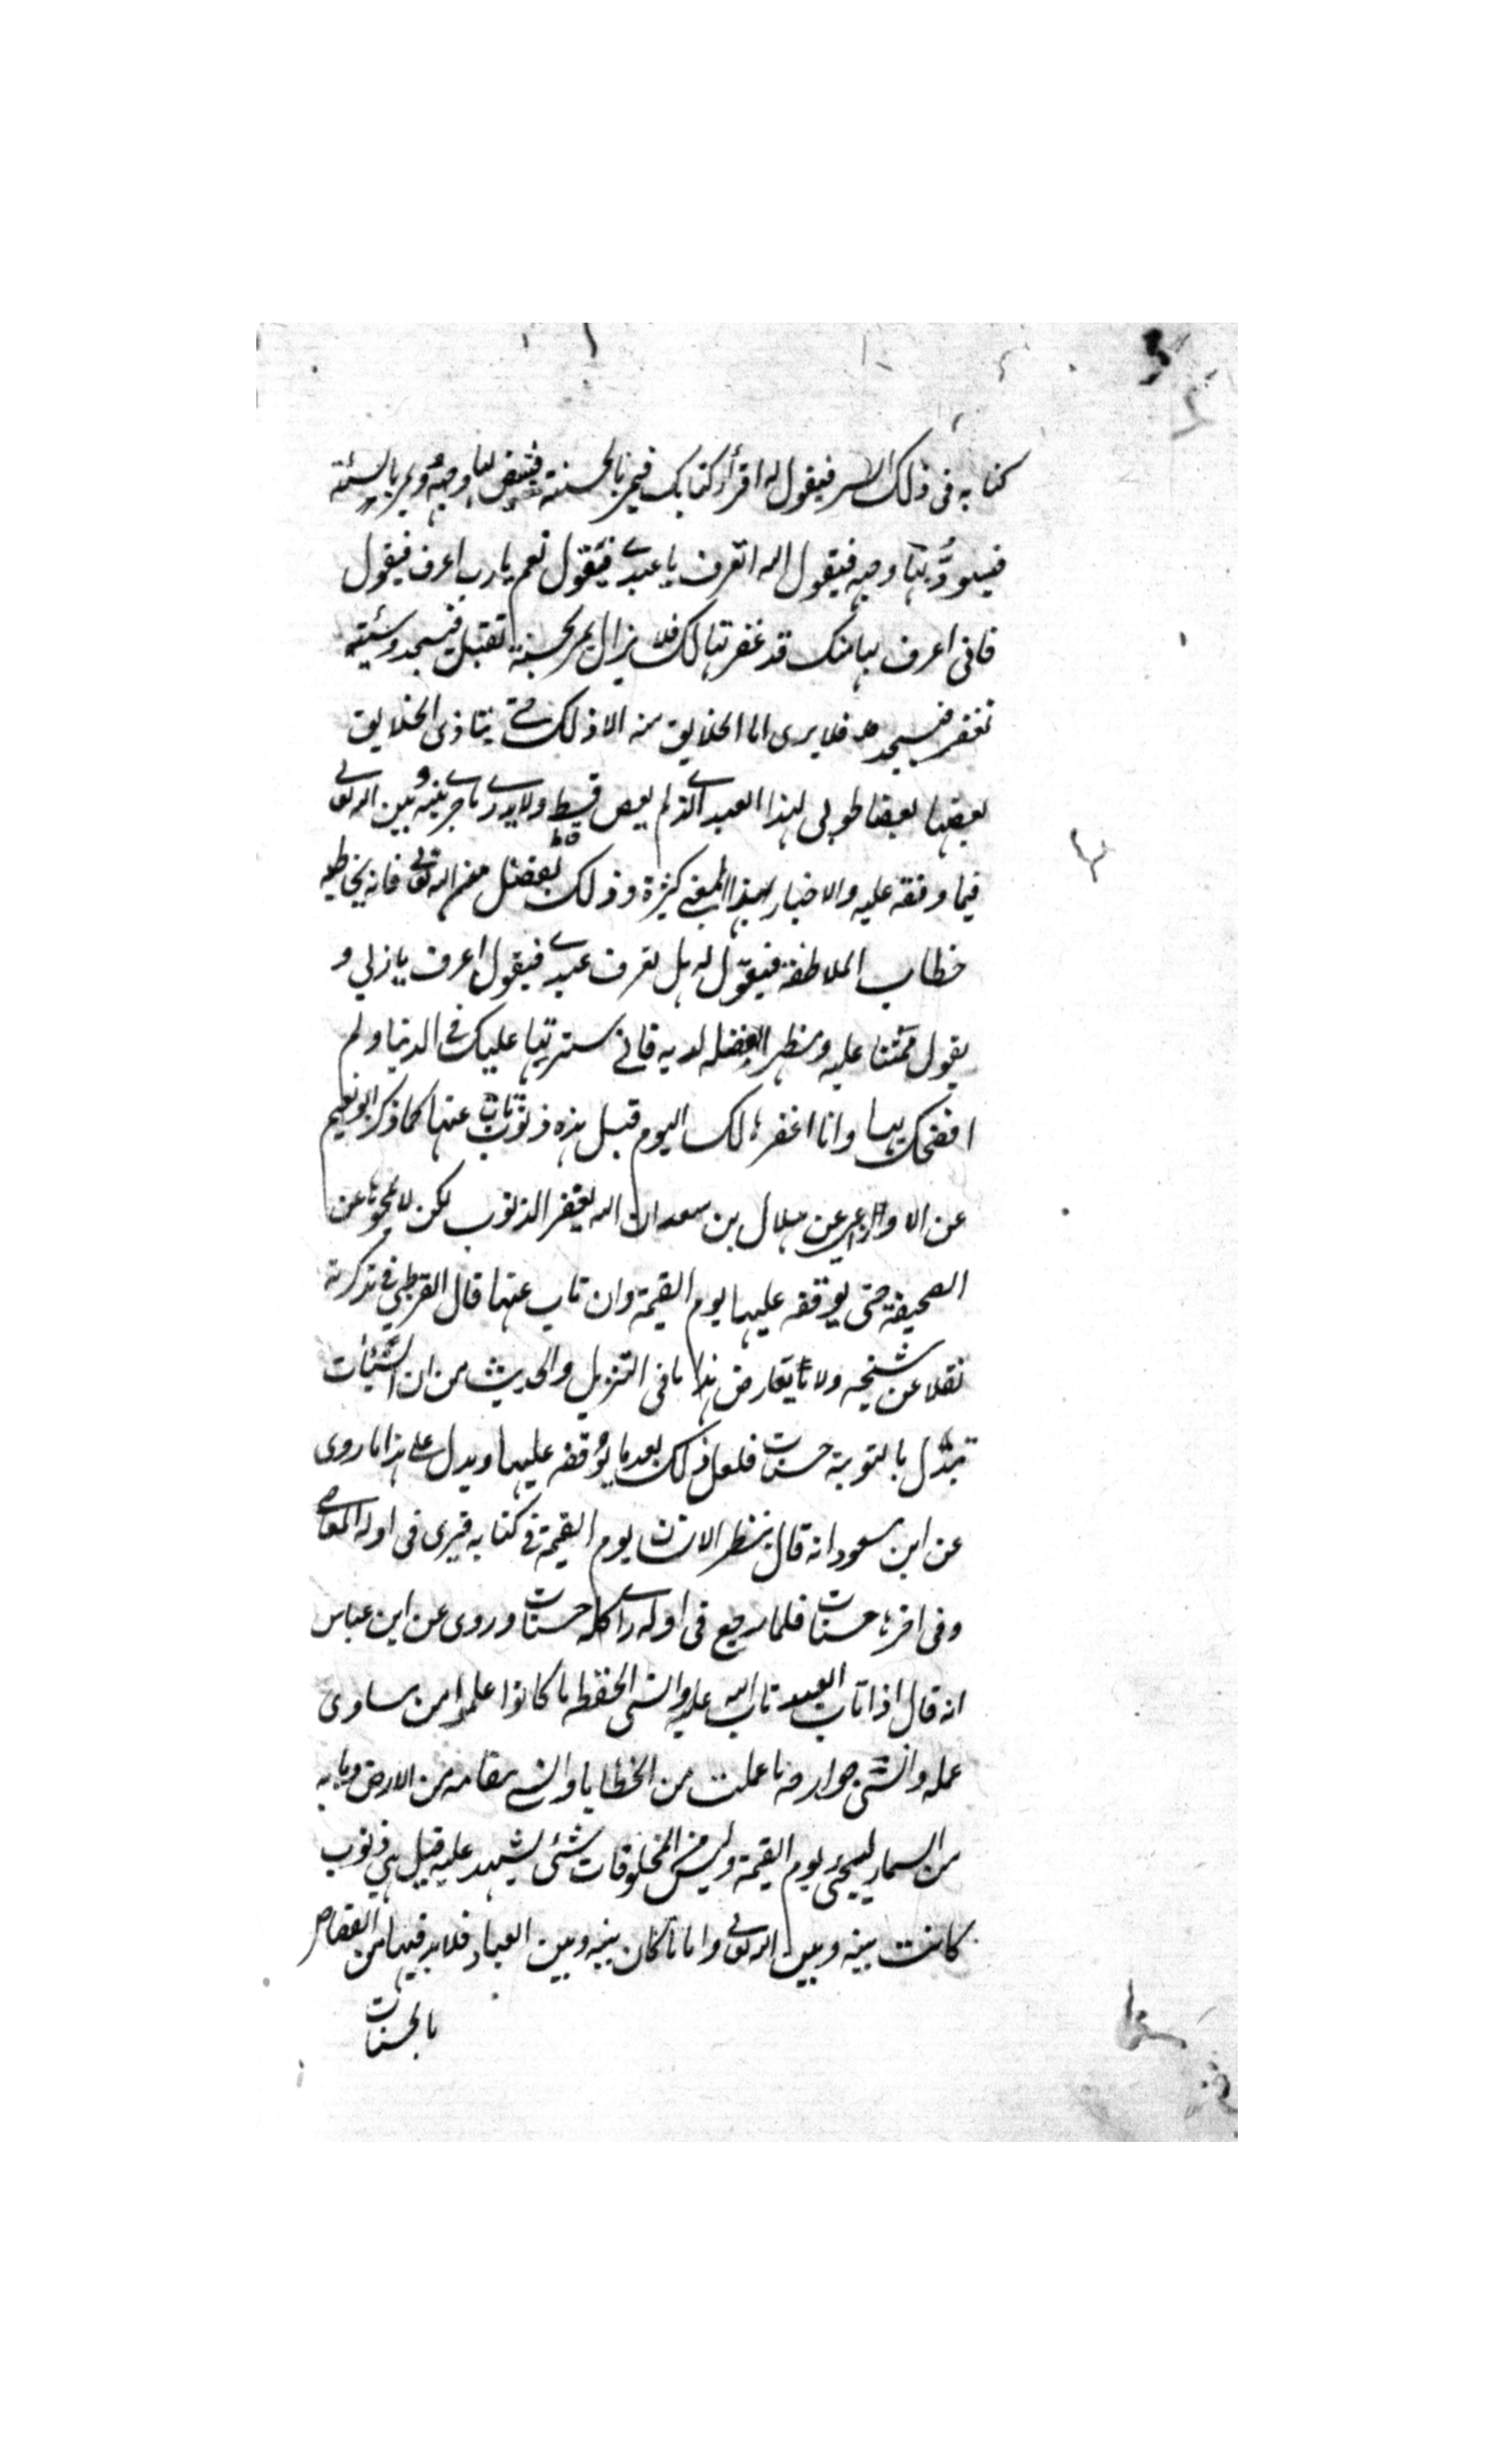 كتابه فى ذلك الستر فيقول له اقرأ كتابك فيمر بالحسنة فيبيض لها وجهه ويمر بالسيئة
فيسودّ بها وجهه فيقول الله اتعرف يا عبدي فيقول نعم يا رب اعرف فيقول
فانى اعرف بها منك قد غفرتها لك فلا يزال يمر بحسنة تقبل فيسجد وسيئة
تغفر فيسجد فلا يرى الخلايق منه الا ذلك حتى ينادى الخلايق
بعضها بعضا طوبى لهذا العبد الذي لم يعص قط ولا يدري ما جرى بينه وبين الله تعالى
فيما وقفه عليه والاخبار بهذا المعنى كثيرة وذلك بفضل من الله تعالى فانه يخاطبه
خطاب الملاطفة فيقول له هل تعرف عبدي فيقول اعرف يا ربي و
يقول ممتنا عليه ومظهرا لفضله لديه فاني سترتها عليك في الدنيا ولم
افضحك بها وانا اغفرها لك اليوم قيل هذه ذنوب تاب عنها كما ذكر ابو نعيم
عن الاوزاعي عن هلال بن سعد ان الله يغفر الذنوب لكن لا يمحوها عن
الصحيفة حتى يوقفه عليها يوم القيمة وان تاب عنها قال القرطبي في تذكرته
نقلا عن شيخه ولا يعارض هذا ما فى التنزيل والحديث من ان السيئات
تبدّل بالتوبة حسنات فلعل ذلك بعد ما يوقفه عليها ويدل على هذا ما روى
عن ابن مسعود انه قال ينظر الانسان يوم القيمة في كتابه فيرى فى اوله المعاصي
وفى اخرها حسنات فلما رجع فى اوله راى كله حسنات وروى عن ابن عباس
انه قال اذا تاب العبد تاب الله عليه وانسى الحفظه ما كانوا علموا من مساوى
عمله وانسى جوارحه ما عملت من الخطايا وانسى مقامه من الارض وبابه
من السماء ليجئ يوم القيمة وليس من المخلوقات شئ يشهد عليه قيل هي ذنوب
كانت بينه وبين الله تعالى واما ما كان بينه وبين العباد فلا بد فيها من القصاص
بالحسنات